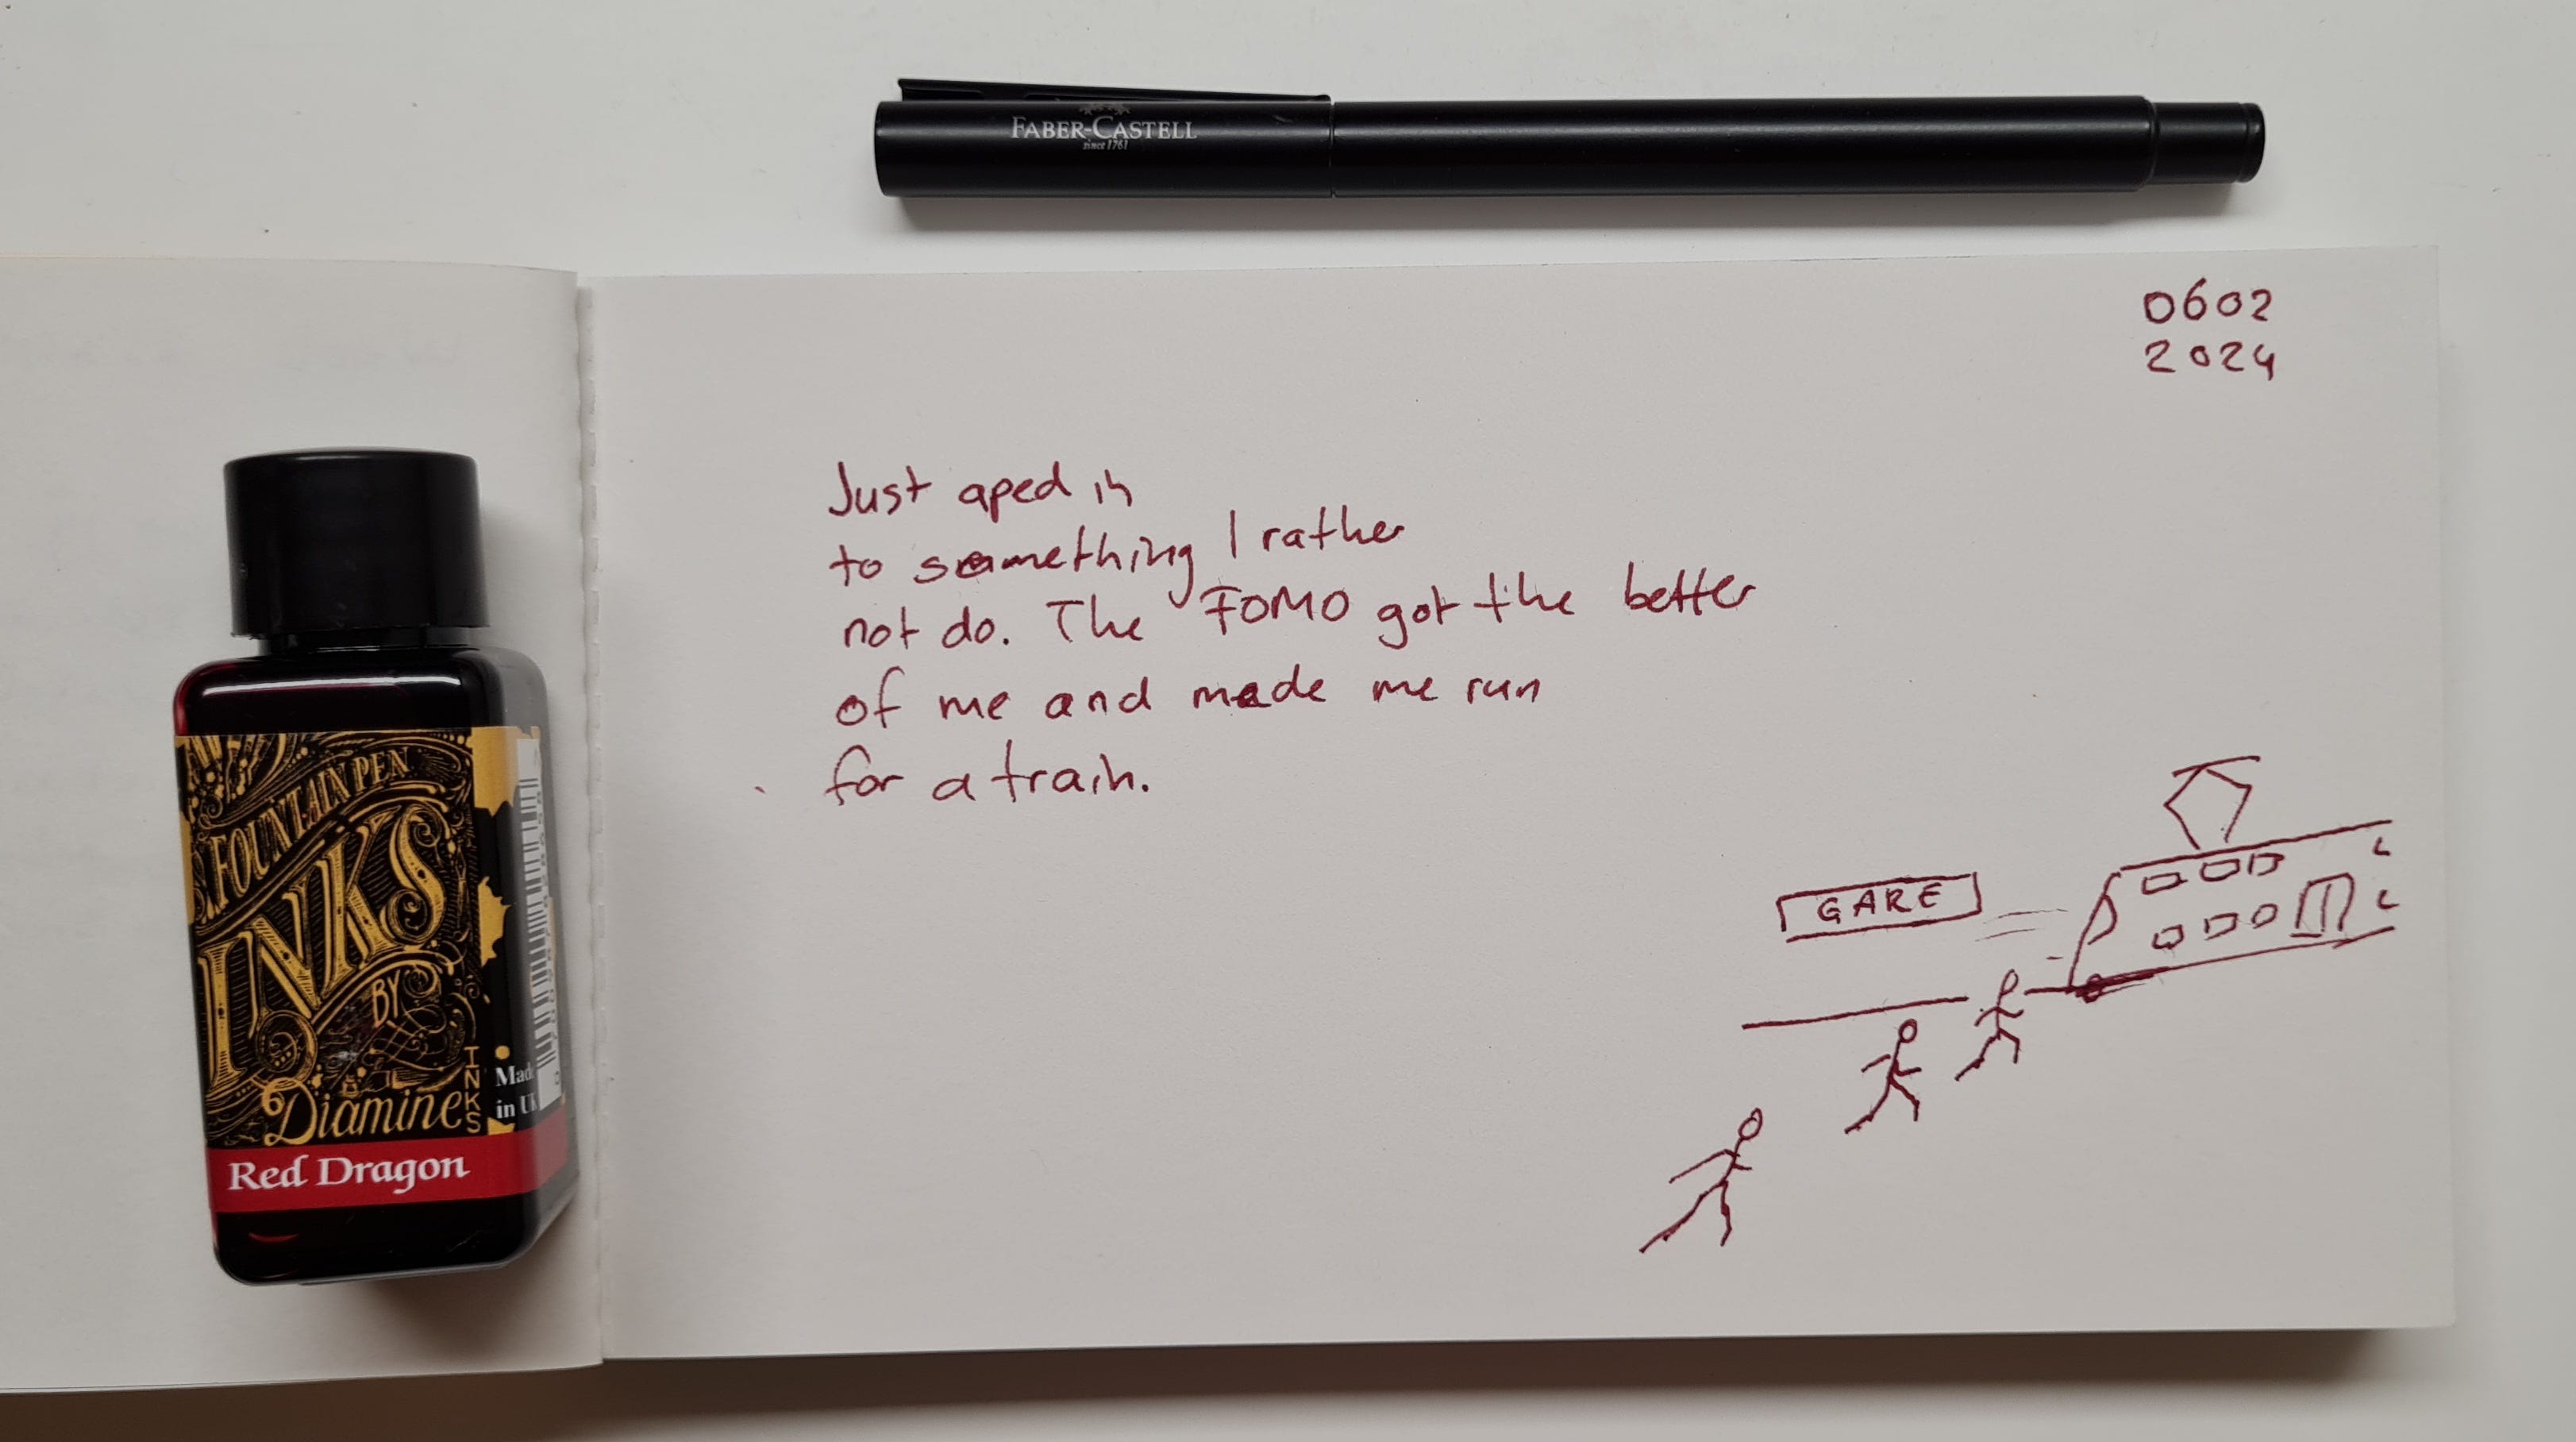 FABER-CASTELL
since 1761
0602
2024
Just aped in
to something I rather
not do. The FOMO got the better
of me and made me run
for a train.
GARE
FOUNTAIN PEN
INKS
BY
Diamine
INKS
Made
in UK
Red Dragon